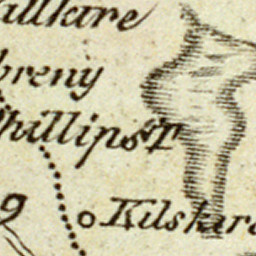 allkare
breny
Phillips T
g
Kilskard